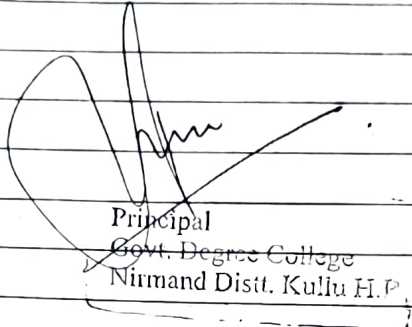 Principal
Govt. Degree College
Nirmand Distt. Kullu H.P.